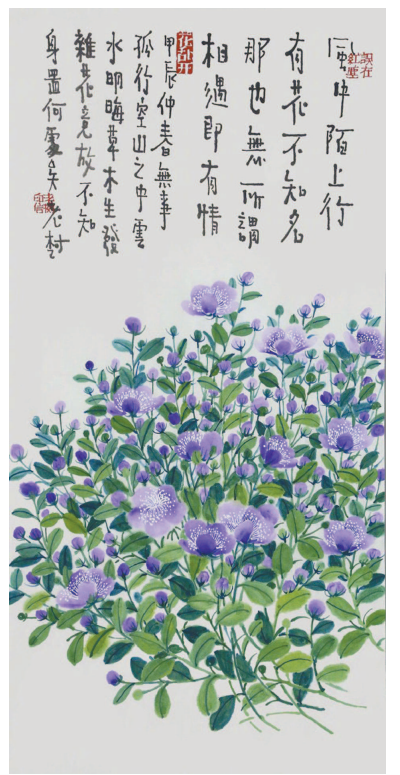 風中陌上行
有花不知名
那也無所謂
相遇即有情
甲辰仲春無事
孤行空山之中雲
水明晦草木生發
雜花竟放不知
身置何處矣老村
誤在
紅塵